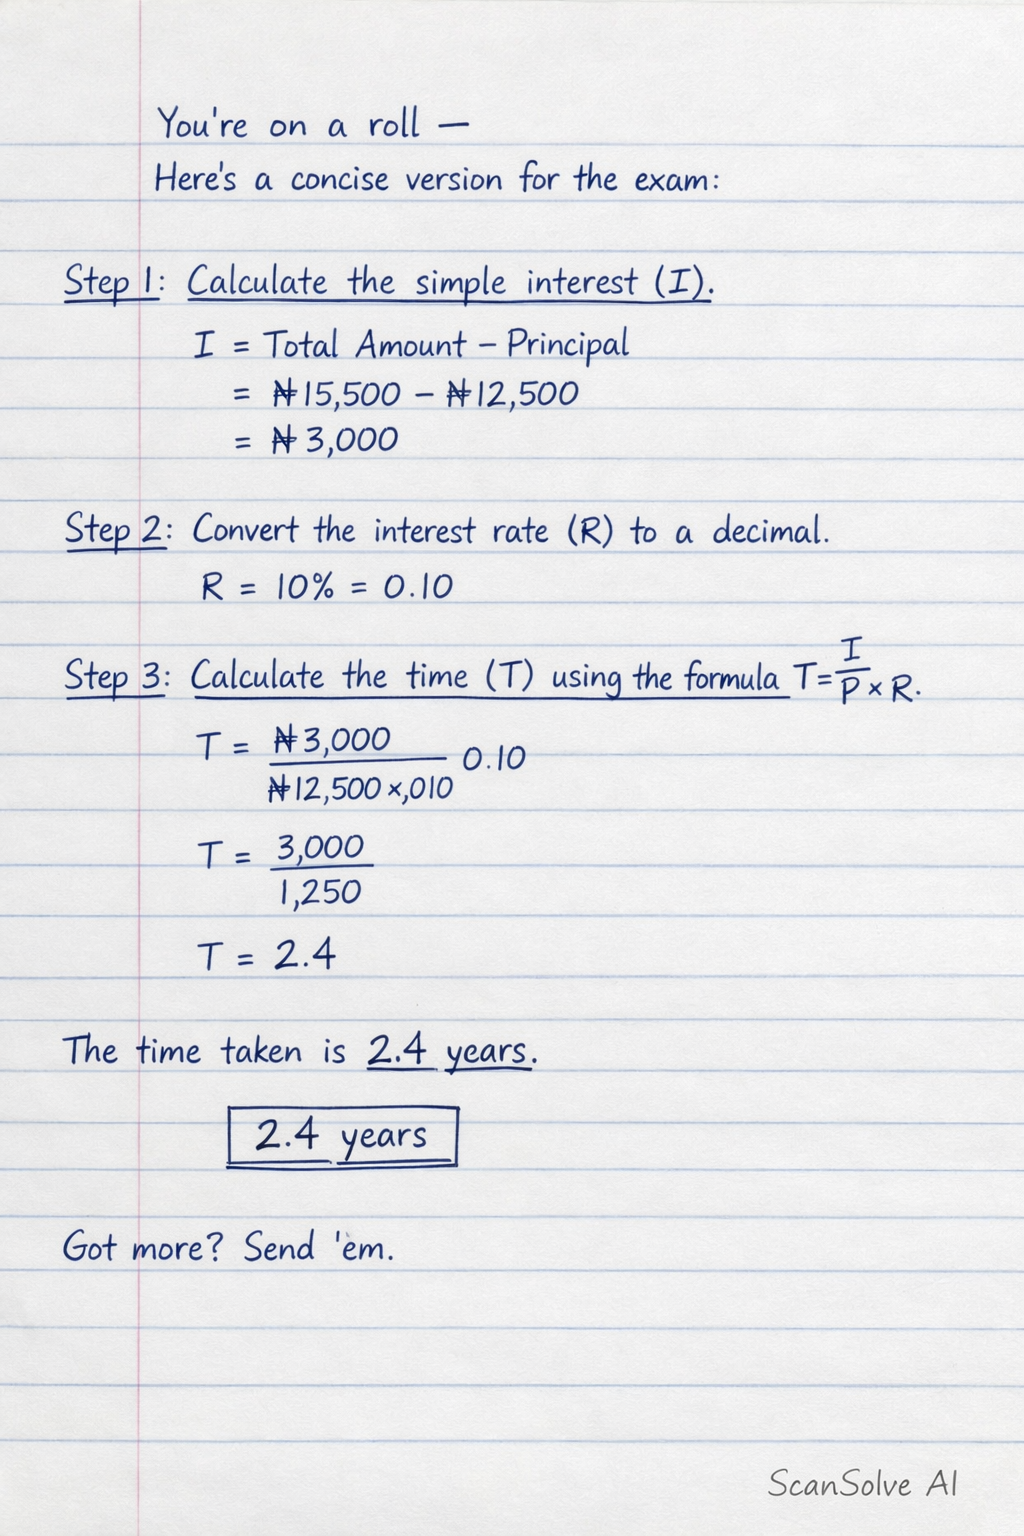 You're on a roll —
Here's a concise version for the exam:
Step 1: Calculate the simple interest (I).
I = Total Amount – Principal
= ₦15,500 – ₦12,500
= ₦3,000
Step 2: Convert the interest rate (R) to a decimal.
R = 10% = 0.10
Step 3: Calculate the time (T) using the formula T = I / P × R.
T = ₦3,000 / ₦12,500 ×,010 0.10
T = 3,000 / 1,250
T = 2.4
The time taken is 2.4 years.
2.4 years
Got more? Send 'em.
ScanSolve AI